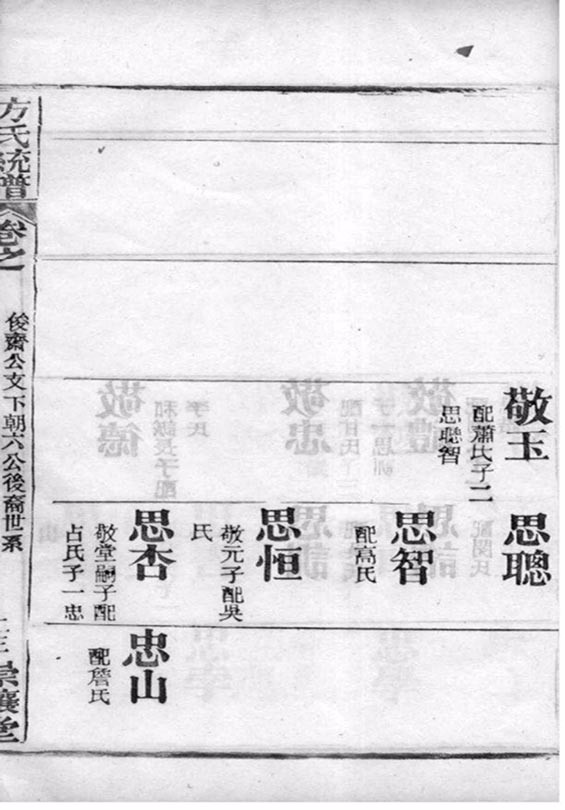 敬玉
配蕭氏子二
思聰智
思聰
思智
配高氏
思恒
敬元子配吳
氏
思杏
敬堂嗣子配
占氏子一忠
忠山
配詹氏
方氏統譜
卷之
俊齋公文下朝六公後裔世系
崇讓堂